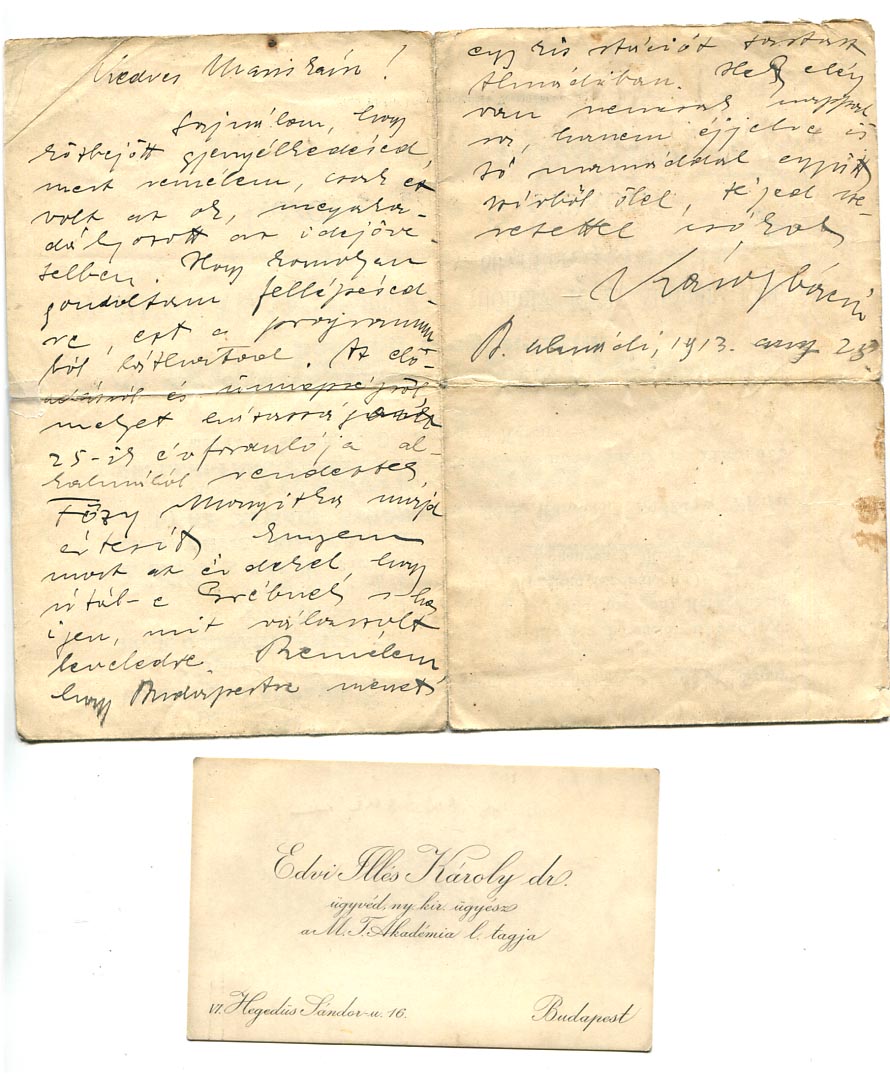 Kedves Mariskám!
Sajnálom, hogy
közbejött gyengélkedésed,
mert remélem, csak ez
volt az ok, megaka-
dályozott az idejöve-
telben. Hogy komolyan
gondoltam fellépésed-
re, ezt a programm
ból láthattad. Az elő-
adásról és ünnepségről,
melyet házasságunk
25-ik évfordulója al-
kalmából rendeztek,
Főzy Manyitka majd
értesít. Engem
most az érdekel, hogy
írtál-e Grébnek s ha
igen, mit válaszolt
leveledre. Remélem,
hogy Budapestre menet
egy kis stációt tartasz
Almádiban. Hely elég
van nemcsak nappal
ra, hanem éjjelre is
Jó mamáddal együtt
szívből ölel, téged sze-
retettel csókol
Károly bácsi
B. almádi, 1913. aug 25.
Edvi Illés Károly dr.
ügyvéd, ny. kir. ügyész
a M. T. Akadémia l. tagja
VI. Hegedüs Sándor-u. 16.
Budapest